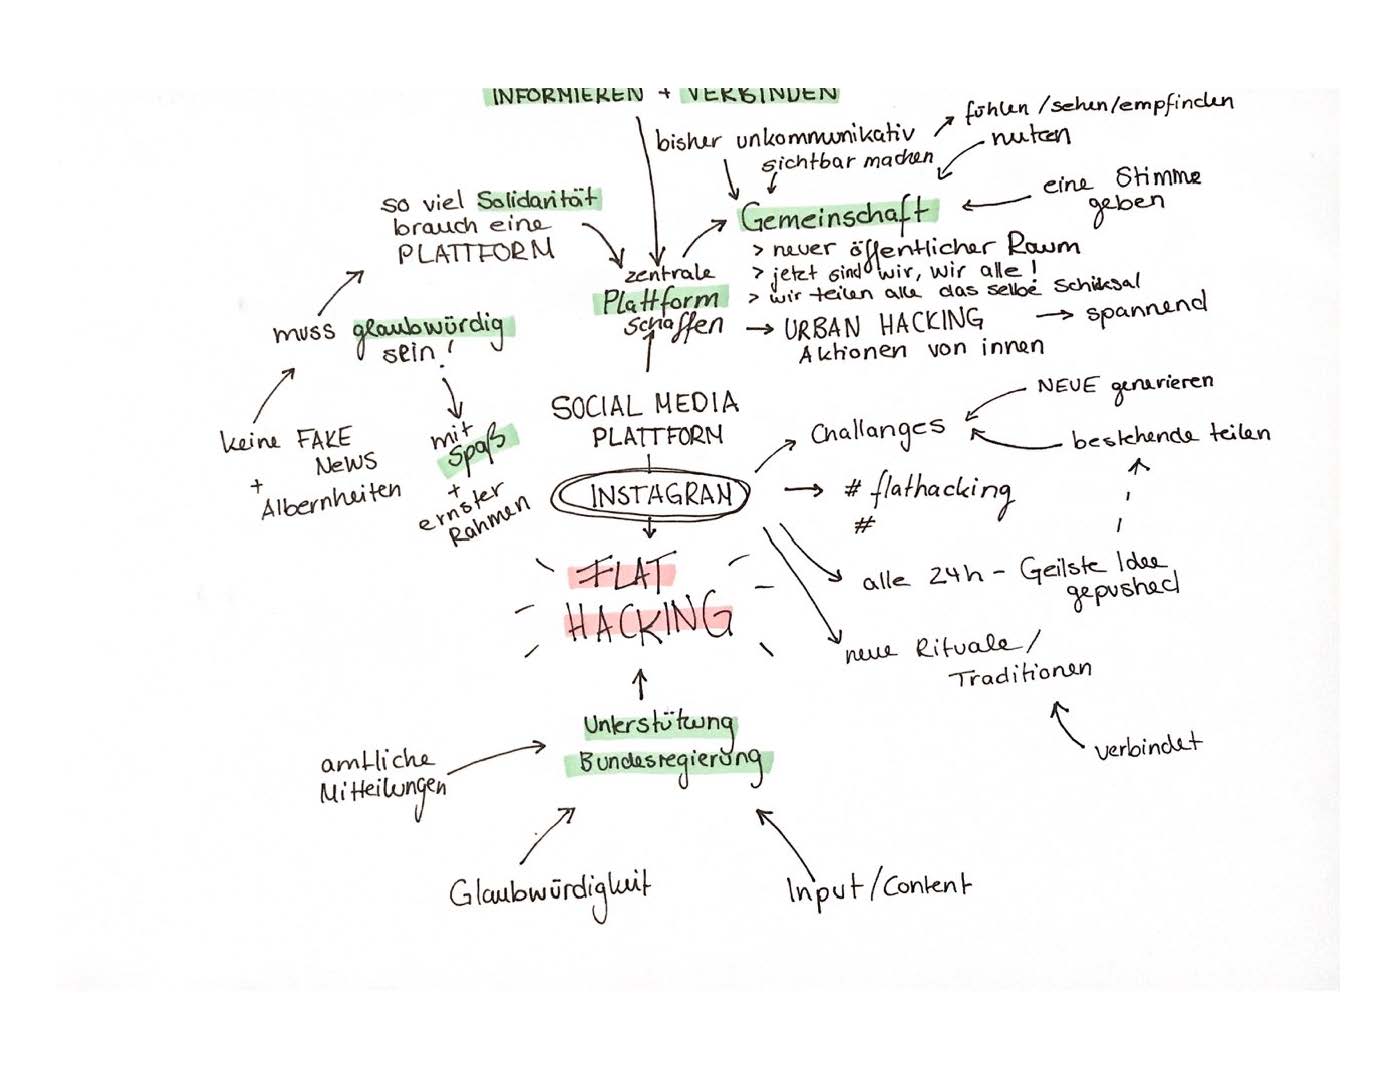 INFORMIEREN + VERBINDEN
bisher unkommunikativ
sichtbar machen
fühlen/sehen/empfinden
nutzen
eine Stimme
geben
so viel Solidarität
brauch eine
PLATTFORM
Gemeinschaft
> neuer öffentlicher Raum
> jetzt sind wir, wir alle!
> wir teilen alle das selbe Schiksal
zentrale
Plattform
schaffen
→ URBAN HACKING → spannend
Aktionen von innen
muss glaubwürdig
sein!
keine FAKE
NEWS
+
Albernheiten
mit
Spaß
+
ernster
Rahmen
SOCIAL MEDIA
PLATTFORM
INSTAGRAM
Challanges
NEUE generieren
bestehende teilen
# flathacking
#
alle 24h - Geilste Idee
gepushed
neue Rituale/
Traditionen
verbindet
FLAT
HACKING
Unterstützung
Bundesregierung
amtliche
Mitteilungen
Glaubwürdigkeit
Input/Content